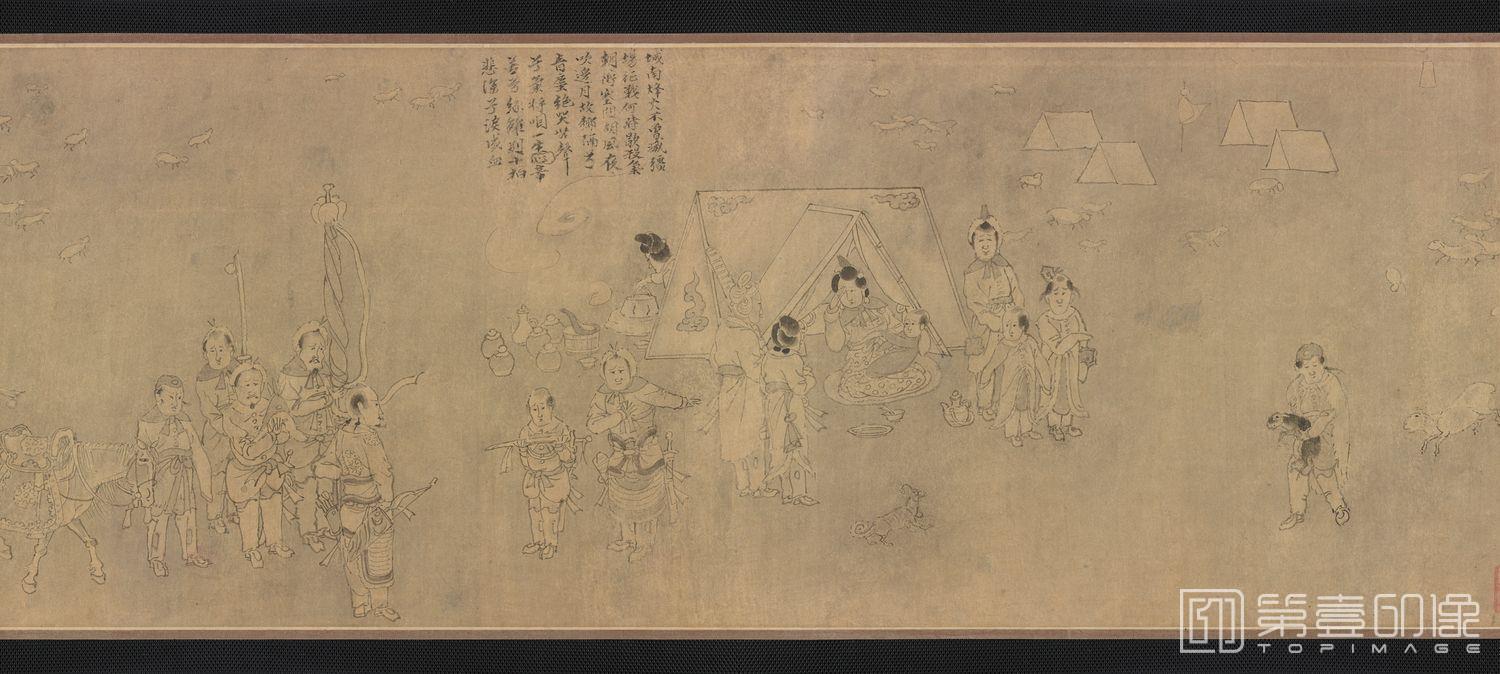 城南烽火不曾滅疆
場征戰何時歇殺氣
朝衝塞門胡風夜
吹邊月故鄉隔兮
音塵絕哭無聲
兮氣將咽一生辛
苦兮緣離別十拍
悲深兮淚成血
第壹印像
TOPIMAGE